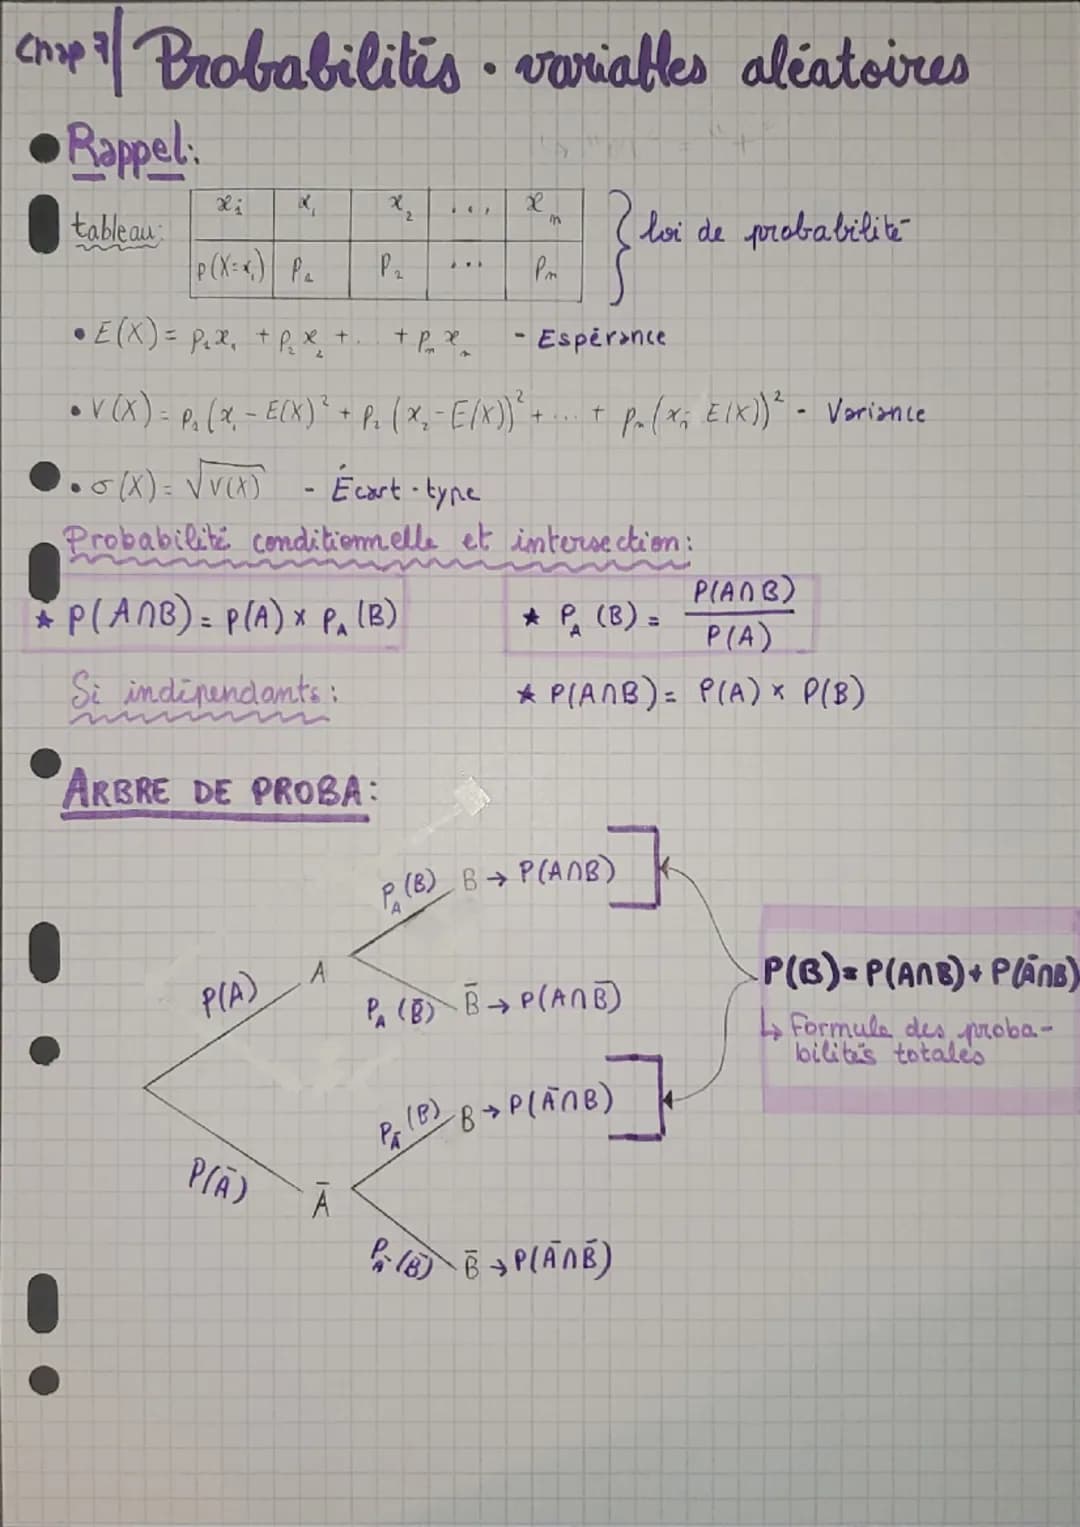 Chap 7 Probabilités · variables aléatoires
Rappel:
tableau:
xi x₁ x₂ ... xₙ
p(X=x₁) P₁ P₂ ... Pₙ
loi de probabilité
• E(X) = p₁x₁ + p₂x₂ + ... + pₙxₙ - Espérance
• V(X) = p₁(x₁ - E(X)² + p₂(x₂ - E(X))² + ... + pₙ(xₙ- E(X))² - Variance
• σ(X) = √V(X) - Écart-type
Probabilité conditionnelle et intersection:
★ p(A∩B) = p(A) × P_A(B)
★ P_A(B) = P(A∩B) / P(A)
Si indépendants:
★ P(A∩B) = P(A) × P(B)
ARBRE DE PROBA:
P_A(B) B → P(A∩B)
P(A) A
P_A(B̄) B̄ → P(A∩B̄)
P(B) = P(A∩B) + P(Ā∩B)
↳ Formule des proba-
bilités totales
P_Ā(B) B → P(Ā∩B)
P(Ā) Ā
P_Ā(B̄) B̄ → P(Ā∩B̄)